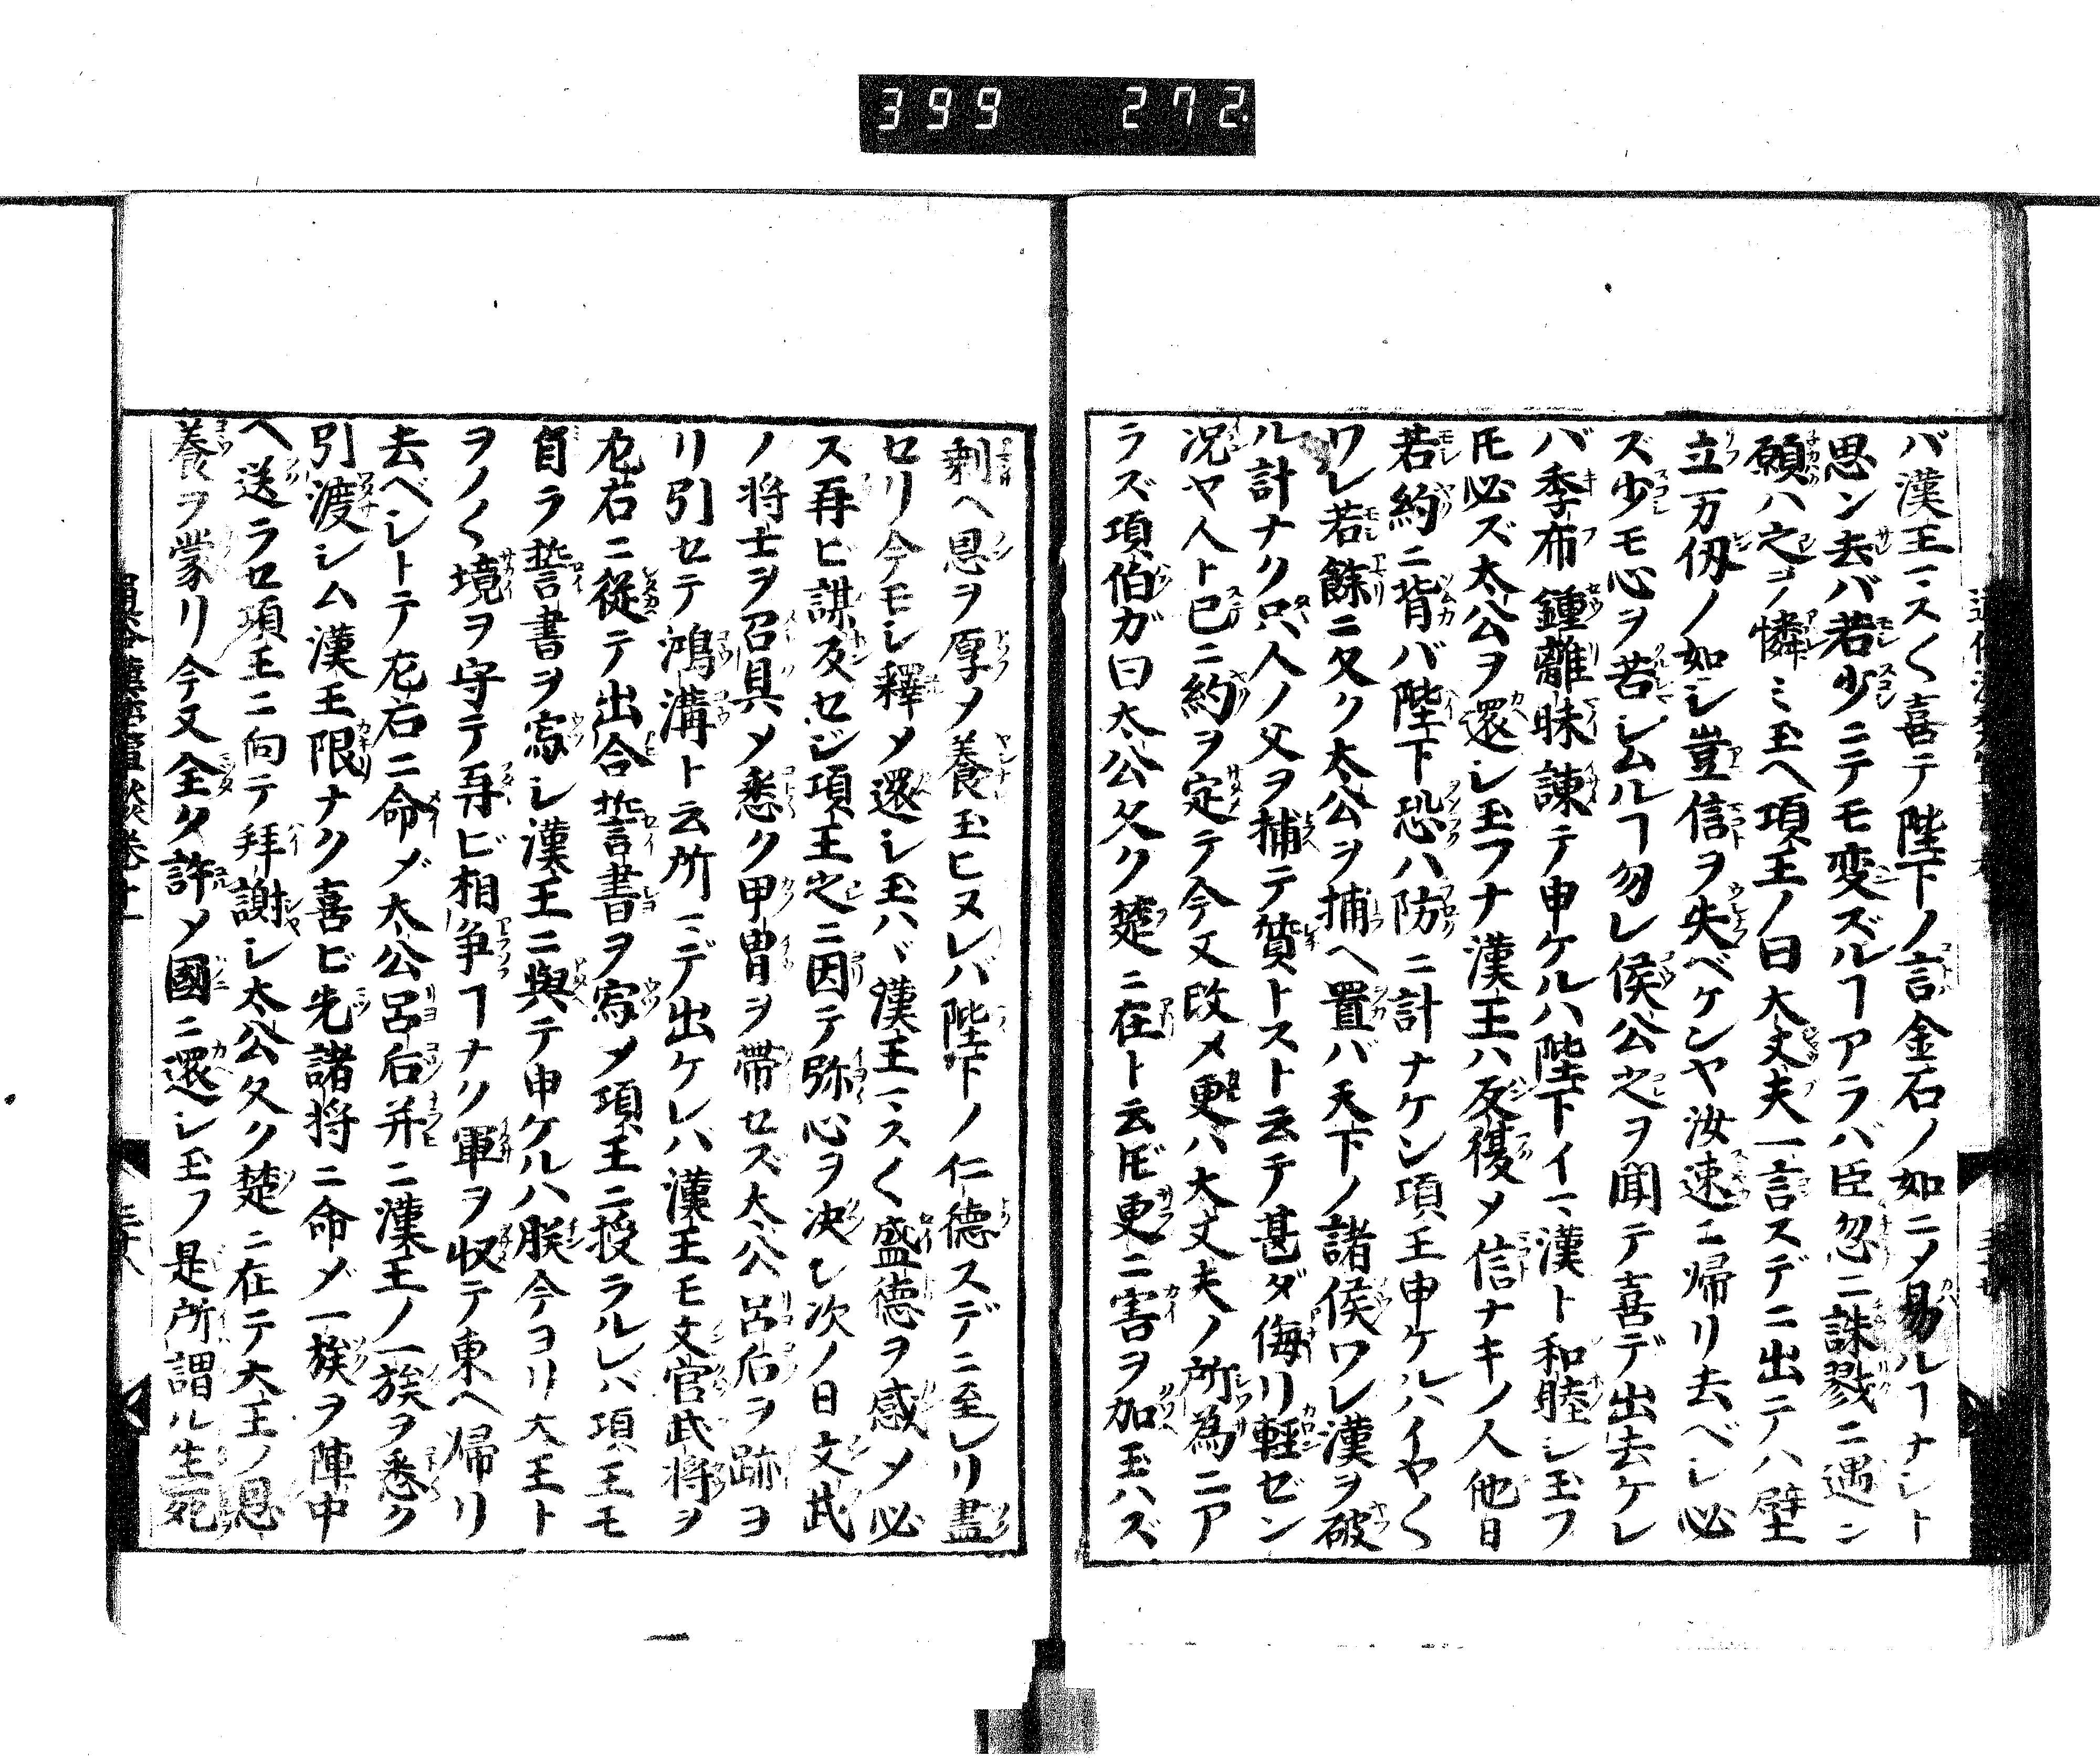 399 272.
バ漢王マスく喜テ陛下ノ言金石ノ如ニメ易ルヿナシト
思ン去バ若少ニテモ変ズルヿアラバ臣忽ニ誅戮ニ遇ン
願ハ之ヲ憐ミ玉ヘ項王ノ曰大丈夫一言スデニ出テハ壁
立万仞ノ如シ豈信ヲ失ベケンヤ汝速ニ帰リ去ベシ必
ズ少モ心ヲ若シムルヿ勿レ侯公之ヲ聞テ喜デ出去ケレ
バ季布鍾離昧諫テ申ケルハ陛下イマ漢ト和睦シ玉フ
𪜈必ズ太公ヲ還シ玉フナ漢王ハ反覆メ信ナキノ人他日
若約ニ背バ陛下恐ハ防ニ計ナケン項王申ケルハイヤく
ワレ若餘ニ久ク太公ヲ捕ヘ置バ天下ノ諸侯ワレ漢ヲ破
ル計ナク只人ノ父ヲ捕テ質トスト云テ甚ダ侮リ軽ゼン
况ヤ人ト已ニ約ヲ定テ今又改メ更バ大丈夫ノ所為ニア
ラズ項伯ガ曰太公久ク楚ニ在ト云𪜈更ニ害ヲ加玉ハズ
剰ヘ恩ヲ厚メ養玉ヒヌレバ陛下ノ仁德スデニ至レリ盡
セリ今モシ釋メ還シ玉ハヾ漢王マスく盛德ヲ感メ必
ス再ビ謀反セジ項王之ニ因テ弥心ヲ决シ次ノ日文武
ノ将士ヲ召具メ悉ク甲冑ヲ帶セズ太公呂后ヲ跡ヨ
リ引セテ鴻溝ト云所マデ出ケレバ漢王モ文官武将ヲ
左右ニ從テ出合誓書ヲ寫メ項王ニ授ラルレバ項王モ
自ラ誓書ヲ寫シ漢王ニ與テ申ケルハ朕今ヨリ大王ト
ヲノく境ヲ守テ再ビ相争ヿナク軍ヲ収テ東ヘ帰リ
去ベシトテ左右ニ命メ太公呂后并ニ漢王ノ一族ヲ悉ク
引渡シム漢王限ナク喜ビ先諸将ニ命メ一族ヲ陣中
ヘ送ラセ項王ニ向テ拜謝シ太公久ク楚ニ在テ大王ノ恩
養ヲ蒙リ今又全ク許メ國ニ還シ玉フ是所謂ル生死